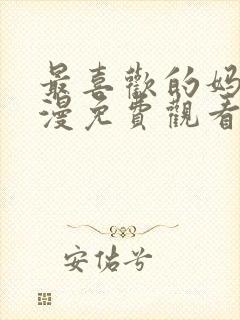 最喜歡的妈
漫免費觀看
安佑兮